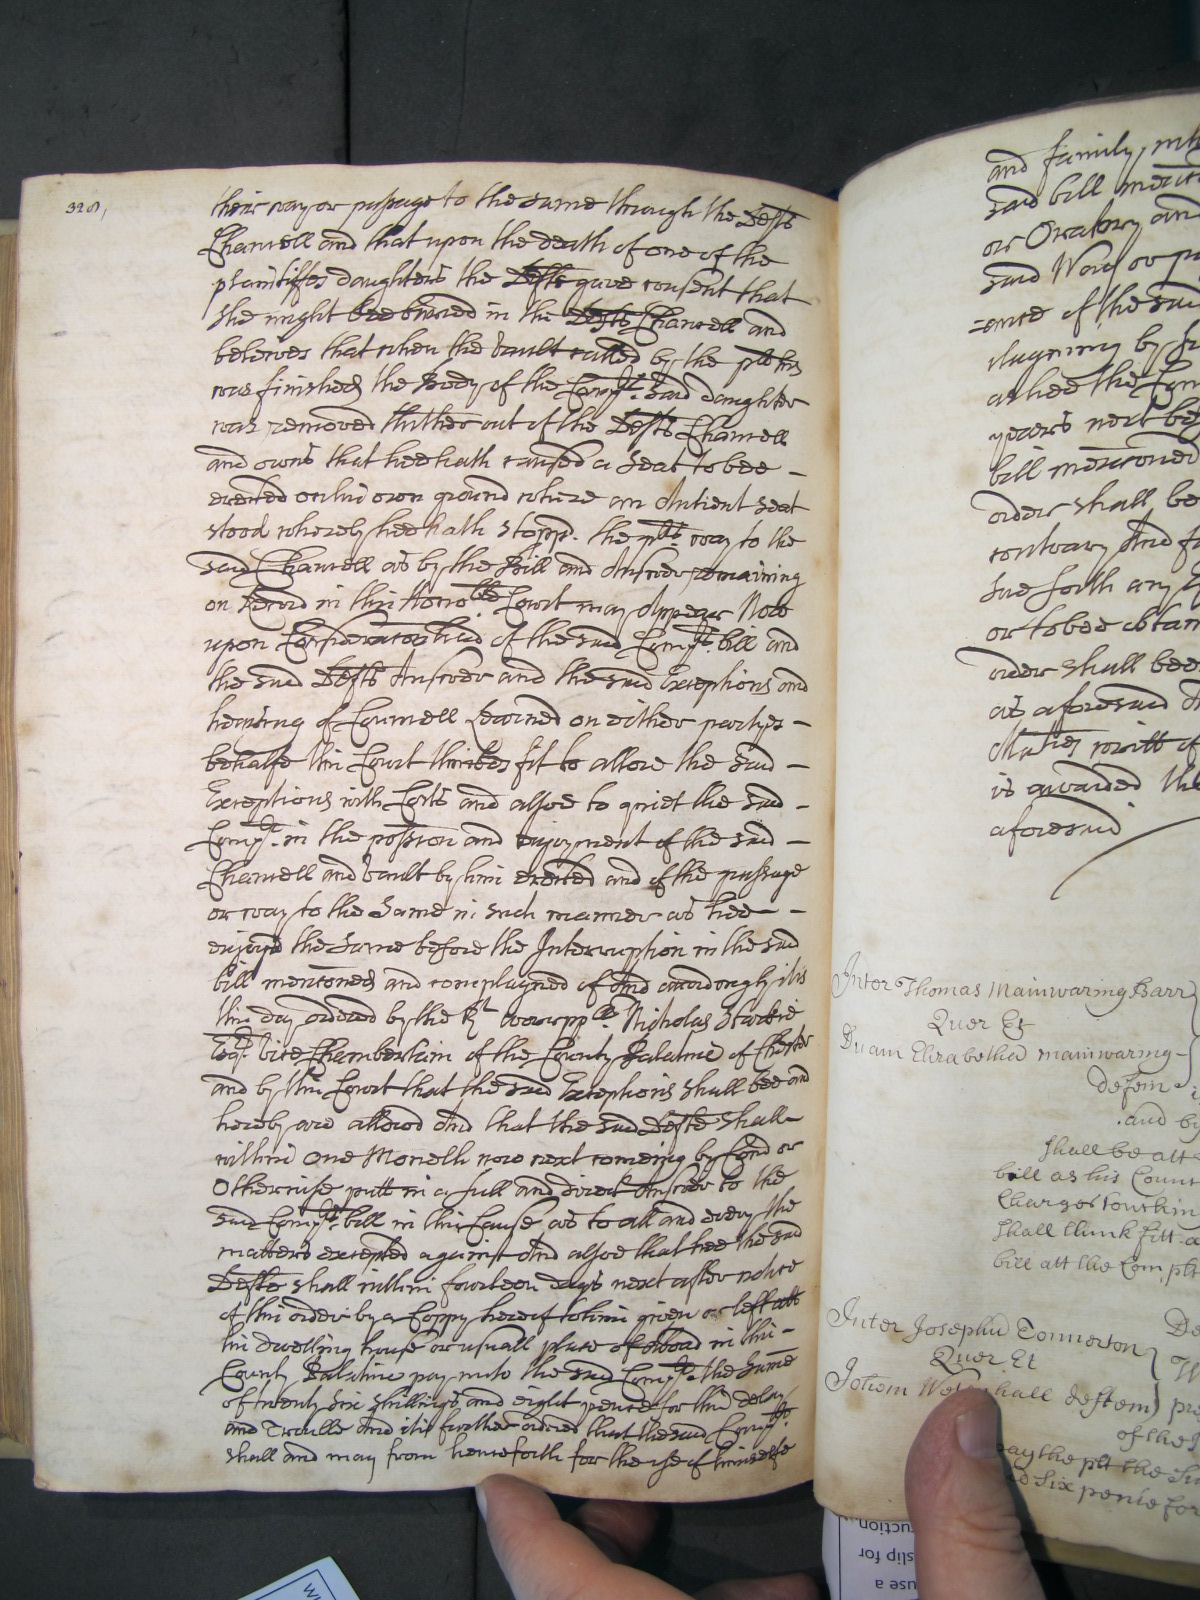 328,
their way or passage to the same through the Defts
Chancell and that upon the death of one of the
plaintiffes daughters the Defts gave consent that
she might bee buried in the Defts Chancell and
beleives that when the Vault called by the plts
was finished the Body of the Complt. said daughter
was removed thither out of the Defts Chancell
and owns that hee hath caused a Seat to bee -
erected on his own ground where an Antient seat
stood whereby hee hath Stopp. the plts way to the
said Chancell as by the Bill and Answer remaining
on Record in this Honoble Court may Appear Now
upon Consideracon had of the said Complt. bill and
the said Defts Answer and the said Exceptions and
hearing of Councell Learned on either partyes -
behalfe this Court thinkes fit to allow the said -
Exceptions with Costs and alsoe to quiet the said -
Complt. in the possion and enjoyment of the said -
Chancell and Vault by him erected and of the passage
or way to the Same in such manner as hee - -
enjoyd the same before the Interruption in the said
bill mentoned and complayned of And accordingly itis
this day ordered by the Rt worspple Nicholas Starkie
Esqr. Vice Chamberlain of the County Palatine of Chester
and by this Court that the said Exceptions shall bee and
hereby are allowed And that the said Defte shall
within One Moneth now next comeing by Cond or
Otherwise putt in a full and direct Answer to the
said Complts. bill in this Cause as to all and every the
matters excepted against And alsoe that hee the said
Defte shall within fourteen days next after notice
of this order by a Coppy hereof to him given or left att
his dwelling house or usuall place of aboad in this -
County Palatine pay unto the said Complt. the Sume
of twenty six shillings and eight pence for this delay
and Trouble And itis further ordered that the said Complt.
shall and may from henceforth for the use of himselfe
and family, 
said bill 
or Oratory and
said Word or 
=ance of the said
 by 
 the
years next 
bill mencioned
order shall be
contrary And
sue forth any
or to bee obtain
order shall bee
as aforesaid
Maties writt of
is awarded the
aforesaid
Inter Thomas Mainwaring Barr
Quer Et
Duam Elizabetha mainwaring -
defem
and by
shall be att
bill as his Coun
Charges touchin
shall think fitt
bill att the Complt
Inter Josephu Tonnerton
Quer. Et
 deftem
of the
pay the plt the
 six pence for
slip for
use a